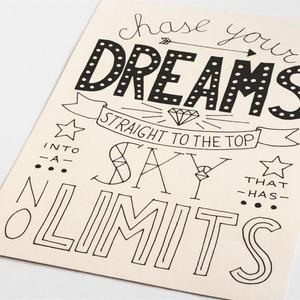 chase your
DREAMS
STRAIGHT TO THE TOP
INTO
-A-
SKY
THAT
-HAS-
NO LIMITS